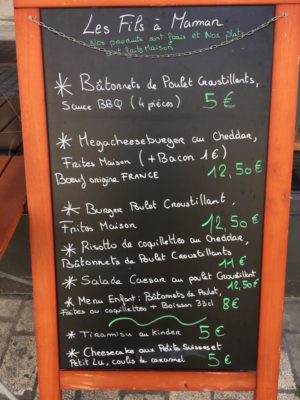 Les Fils à Maman
Nos produits sont frais et Nos plats
sont faits Maison
* Bâtonnets de Poulet Croustillants,
Sauce BBQ (4 pièces) 5 €
* Megacheeseburger au Cheddar,
Frites Maison (+ Bacon 1€)
Bœuf origine FRANCE 12,50 €
* Burger Poulet Croustillant,
Frites Maison 12,50 €
* Risotto de coquillettes au Cheddar,
Bâtonnets de Poulet Croustillants 11 €
* Salade Caesar au poulet Croustillant 12,50 €
* Menu Enfant: Bâtonnets de Poulet,
Frites ou coquillettes + Boisson 33cl 8 €
* Tiramisu au Kinder 5 €
* Cheesecake aux Petits Suisses et
Petit Lu, coulis de caramel 5 €